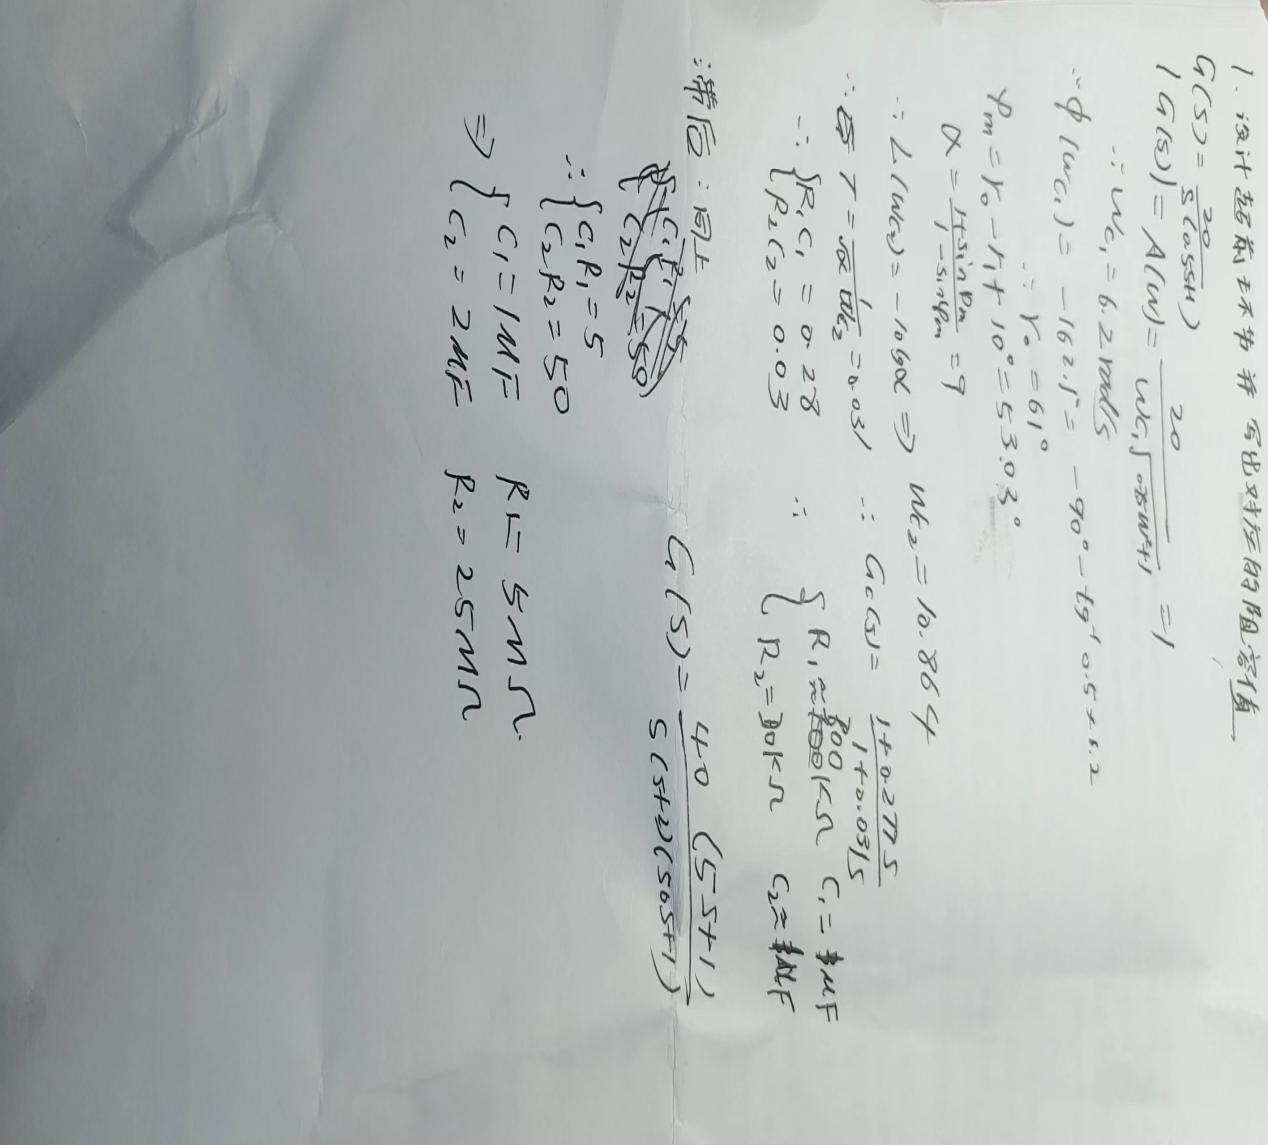 1. 设计超前环节并写出对应的阻容值
G(S) = 20/S(0.5S+1)
|G(S)| = A(W) = 20/Wc₁√0.25W²+1 = 1
∴ Wc₁ = 6.2rad/s
∴ φ(wc₁) = -162.1° = -90° - tg⁻¹ 0.5×6.2
∴ r₀ = 61°
φm = r₀ - r₁ + 10° = 53.03°
α = 1+sinφm/1-sinφm = 9
∴ L(wc₂) = -10lgα ⇒ Wc₂ = 10.864
∴ T = 1/√α Wc₂ = 0.031 ∴ Gc(s) = 1+0.277S/1+0.031S
∴ { R₁C₁ = 0.28 ∴ { R₁≈ 800KΩ C₁= μF
R₂C₂ = 0.03 R₂= 30KΩ C₂≈ μF
∴滞后:同上 G(S) = 40(5S+1)/S(S+2)(50S+1)
∴ { C₁R₁ = 5
C₂R₂ = 50
⇒ { C₁ = 1MF R₁ = 5MΩ.
C₂ = 2MF R₂ = 25MΩ